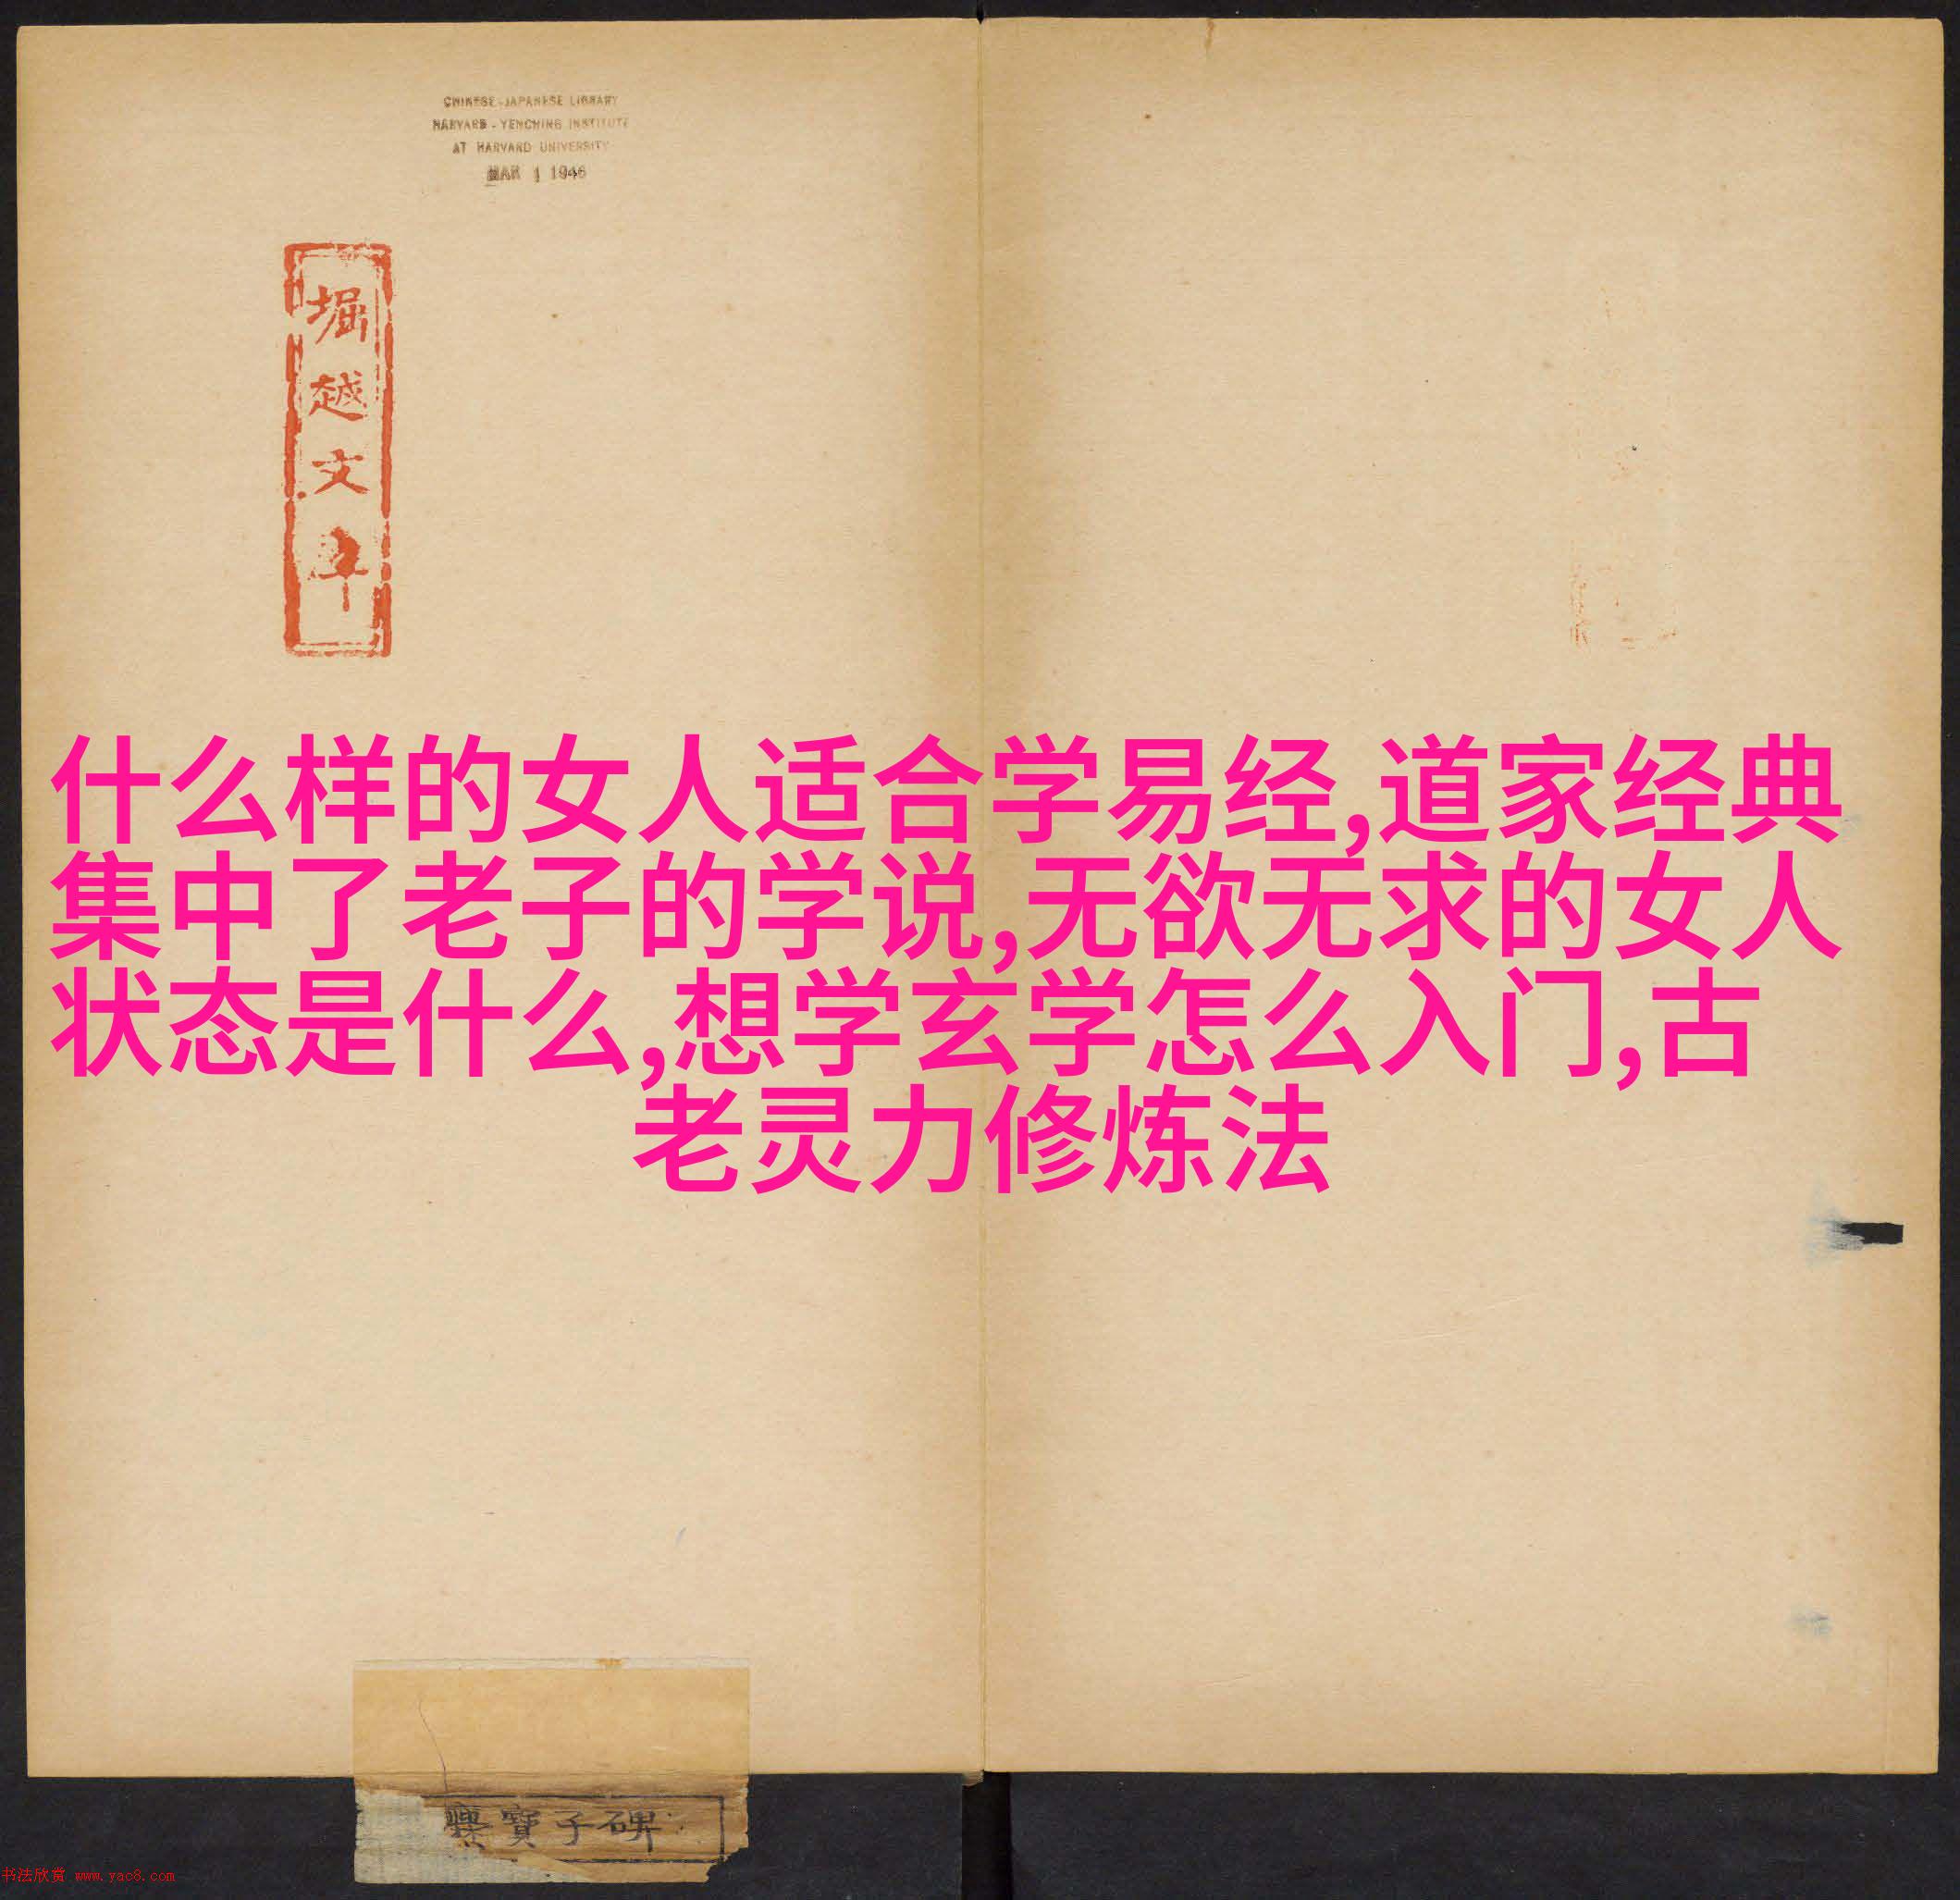 CHINESE-JAPANESE LIBRARY
HARVARD-YENCHING INSTITUTE
AT HARVARD UNIVERSITY
MAR 1 1946
堀越文库
什么样的女人适合学易经,道家经典
集中了老子的学说,无欲无求的女人
状态是什么,想学玄学怎么入门,古
老灵力修炼法
爨寶子碑
书法欣赏 www.yac8.com